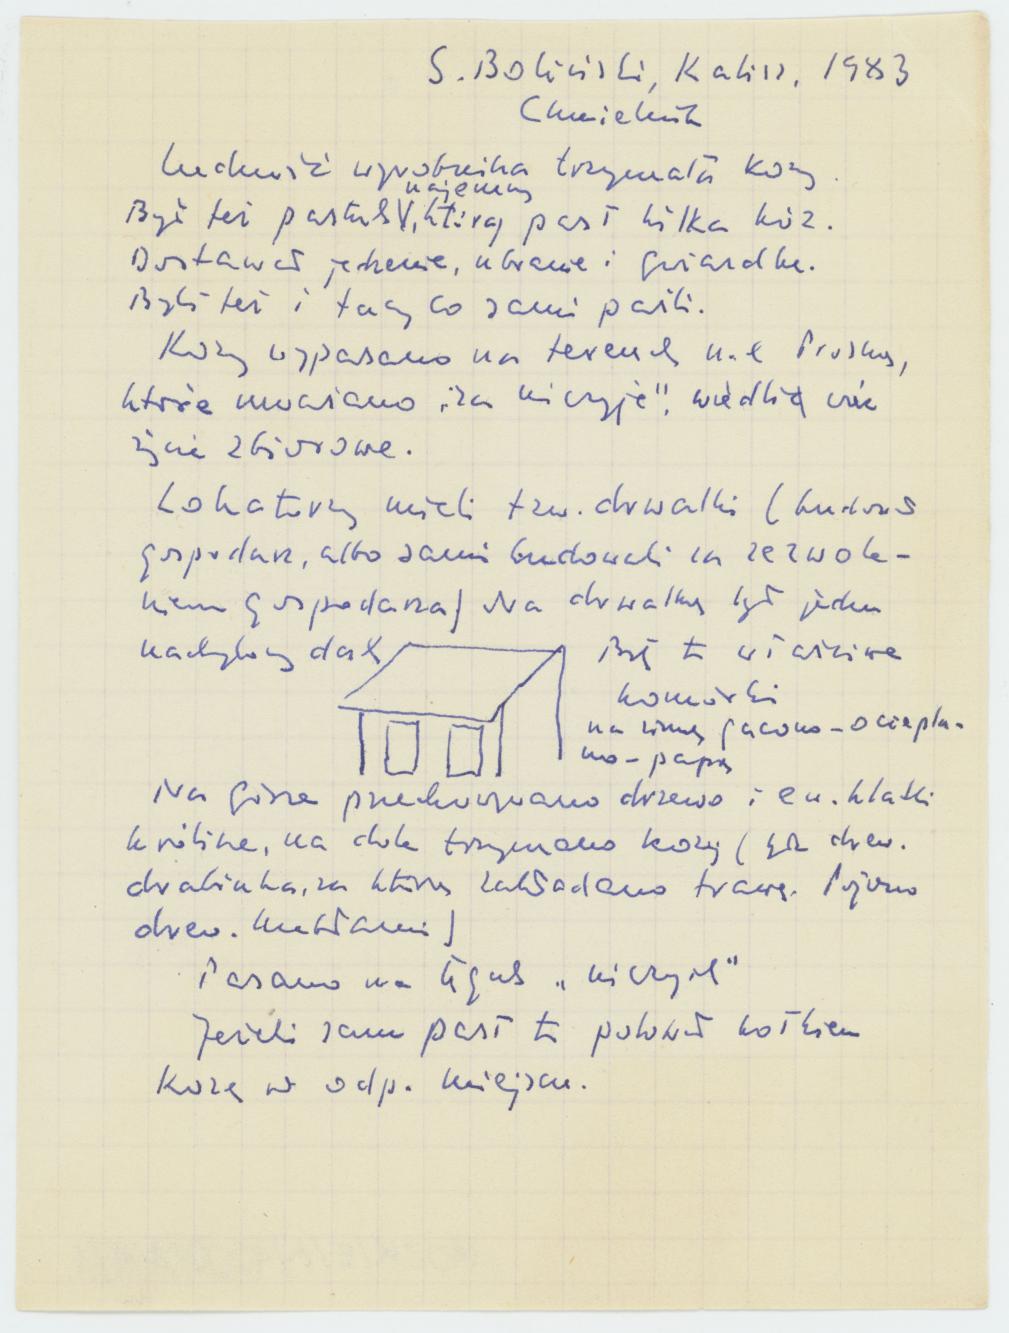 S. Boliński, Kalisz, 1983
Chmielnik
Ludność wyrobnika trzymała kozy.
najemny
Był też pastuch, który pasł kilka kóz.
Dostawał jedzenie, ubranie i gwiazdkę.
Byli też i tacy co sami paśli.
Kozy wypasano na terenach n.e Prosny,
które uważano „za niczyje". wiedli
życie zbiorowe.
Lokatorzy mieli tzw. drwalki (budował
gospodarz, albo sami budowali za zezwole-
niem gospodarza) Na drwalkę był jeden
nachylony dach
Były to właściwe
komórki
na zimę gacono - ociepla-
no - papą
Na górze przechowywano drzewo i ew. klatki
królicze, na dole trzymano kozy (gdz drew.
drabinka, za którą zakładano trawę. Pojono
drew. kubłami)
Pasano na łąkach „niczyich"
Jeżeli sam pasł to palował kołkiem
kozę w odp. miejscu.